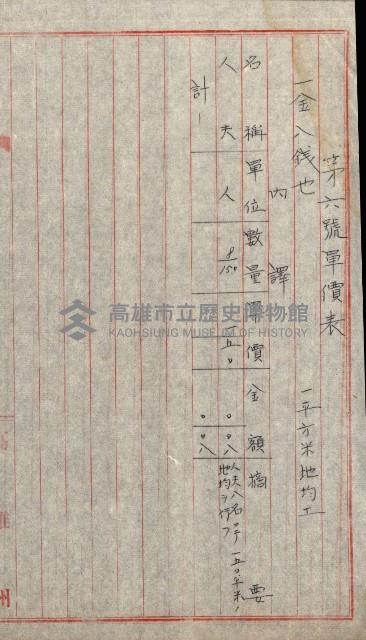 第六號單價表 一平方米地均工
一金八錢也
內譯
名稱 單位 數量 單價 金額 摘要
人夫 人 8/150 一五〇 〇〇八 人夫八名ニテ一五〇平米地均ヲ行フ
計 〇〇八
高雄市立歷史博物館
KAOHSIUNG MUSEUM OF HISTORY
雄
州